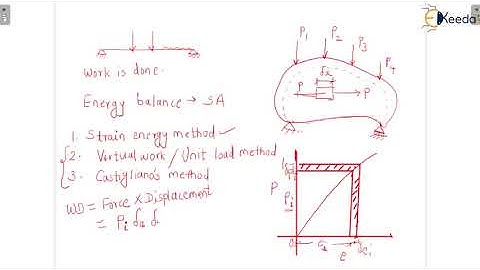 Ekeeda
Work is done.
Energy balance → SA
1. Strain energy method
2. Virtual work / Unit load method
3. Castigliano's method
WD = Force x Displacement
= Pi
P1
P2
P3
P4
dx
P
P
P
Pi
e